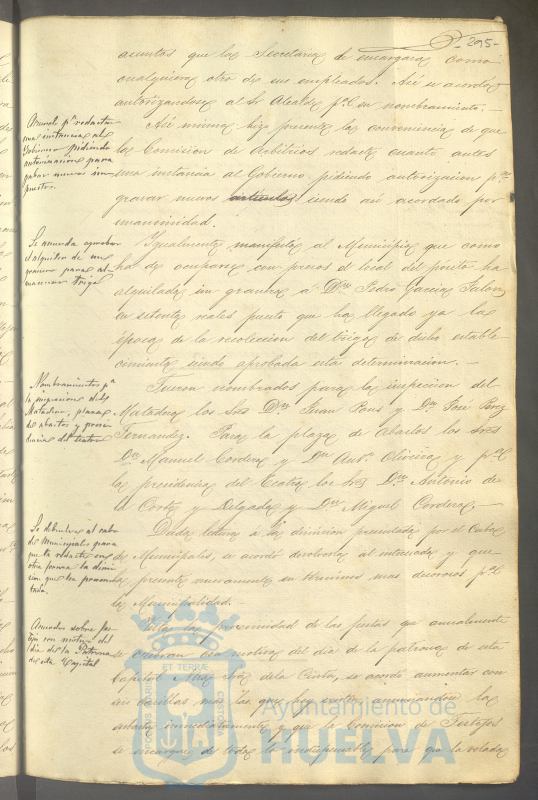 295-
asuntos que la Secretaria de encargara como
cualquiera otro de sus empleados. Así se acordó
autorizandose al Sr Alcalde pª su nombramiento.-
Acuerdo pª redactar
una instancia al
Gobierno pidiendo
autorizacion para
gravar nuevos im
puestos.
Así mismo hizo presente la conveniencia de que
la Comision de Arbitrios redacte cuanto antes
una instancia al Gobierno pidiendo autorizacion pª
gravar nuevos articulos siendo así acordado por
unanimidad.
Se acuerda aprobar
el alquiler de un
granero para al
macenar trigo
Igualmente manifestó al Municipio que como
ha de ocuparse con presos el local del posito ha
alquilado un granero á Dn Pedro Garcia Jalon
en setenta reales puesto que ha llegado ya la
época de la recoleccion del trigo de dicho estable
cimiento siendo aprobada esta determinacion.-
Nombramientos pª
la inspeccion del
Matadero, plaza
de abastos y presi
dencia del teatro
Fueron nombrados para la inspeccion del
Matadero los Sres Dn Juan Pons y Dn José Perez
Fernandez. Para la plaza de Abastos los Sres
Dn Manuel Cordero y Dn Antº Oliveira y pª
la presidencia del Teatro los Sres Dn Antonio de
la Corte y Delgado y Dn Miguel Cordero.
Se debuelve al cabo
de Municipales para
que la redacte en
otra forma la dimi
sion que tenia presen
tada.
Dada lectura á la dimision presentada por el Cabo
de Municipales, se acordó devolverla al interesado y que
la presente nuevamente en términos mas decorosos pª
la Municipalidad.-
Acuerdos sobre fes
tejos con motivo del
dia de la Patrona
de esta Capital
Vista la proximidad de las fiestas que anualmente
se celebran con motivo del dia de la patrona de esta
Capital Ntra Sra de la Cinta, se acordó aumentar con
las que hoy anunciandose la
subasta inmediatamente y que la Comision de Festejos
se encargue de todo lo indispensable para que la velada
Ayuntamiento de
HUELVA
PORTUS MARIS
ET TERRÆ
CUSTODIA